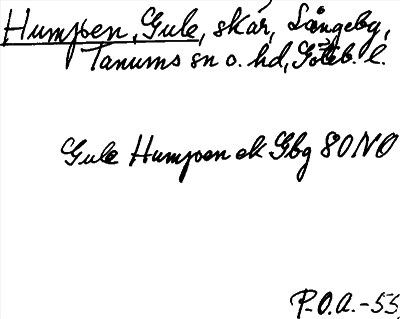 Humpen, Gule, skär, Långeby,
Tanums sn o. hd, Göteb. l.
Gule Humpen ek Gbg 80NO
P.O.A.-53